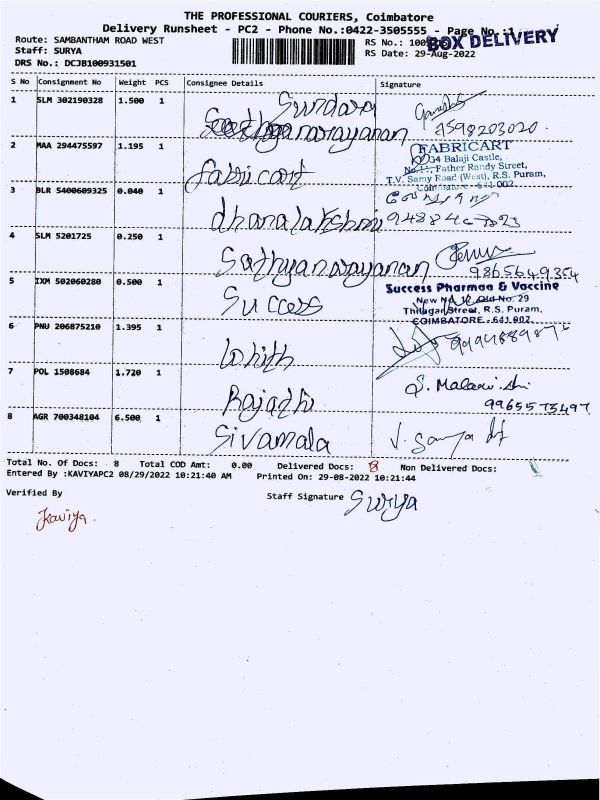 THE PROFESSIONAL COURIERS, Coimbatore
Delivery Runsheet - PC2 - Phone No.:0422-3505555 - Page No.:1
Route: SAMBANTHAM ROAD WEST
RS No.: 100
BOX DELIVERY
Staff: SURYA
RS Date: 29-Aug-2022
DRS No.: DCJB100931501
S No Consignment No Weight PCS Consignee Details Signature
1 SLM 302190328 1.500 1 Sundara
narayanan 7598203020.
2 MAA 294475597 1.195 1 Fabricart
FABRICART
34 Balaji Castle,
Father Randy Street,
T.V. Samy Road (West), R.S. Puram,
Coimbatore - 641 002
3 BLR 5400609325 0.040 1 dhanalakshmi
4 SLM 5201725 0.250 1 Sathyanarayanan 9865649354
5 IXM 502060280 0.500 1 Success
Success Pharmaa & Vaccine
New No. Old No. 29
Thilagar Street, R.S. Puram,
COIMBATORE - 641 002
6 PNU 206875210 1.395 1 Lohith
7 POL 1508684 1.720 1 Rajathi
9965575497
8 AGR 700348104 6.500 1 Sivamala
Total No. Of Docs: 8 Total COD Amt: 0.00 Delivered Docs: 8 Non Delivered Docs:
Entered By :KAVIYAPC2 08/29/2022 10:21:40 AM Printed On: 29-08-2022 10:21:44
Verified By Staff Signature Surya
Kaviya.